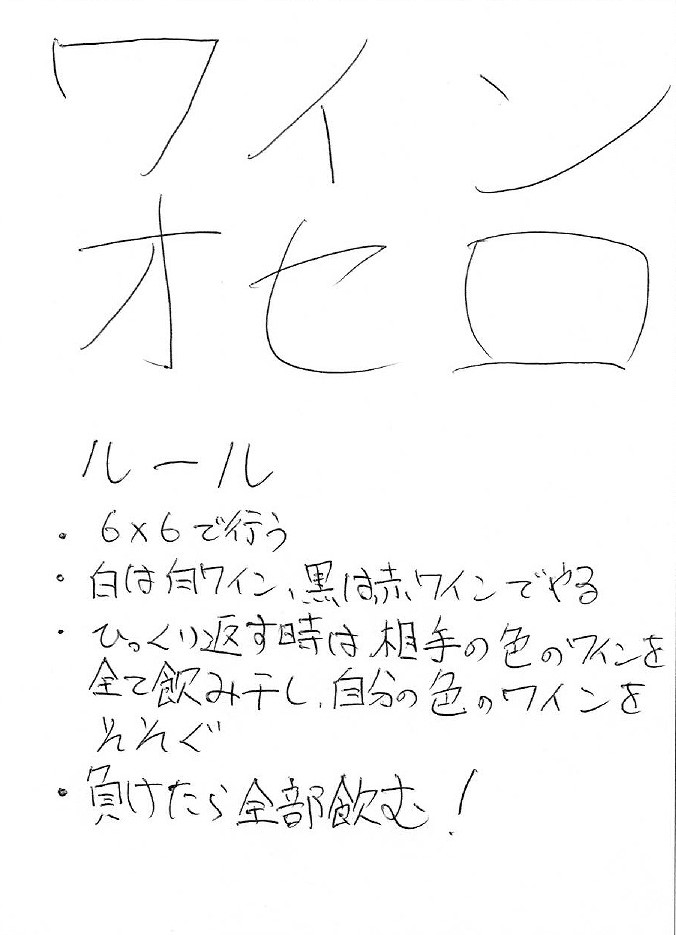 ワイン
オセロ
ルール
・6×6で行う
・白は白ワイン、黒は赤ワインでやる
・ひっくり返す時は、相手の色のワインを
全て飲み干し、自分の色のワインを
そそぐ
・負けたら全部飲む!